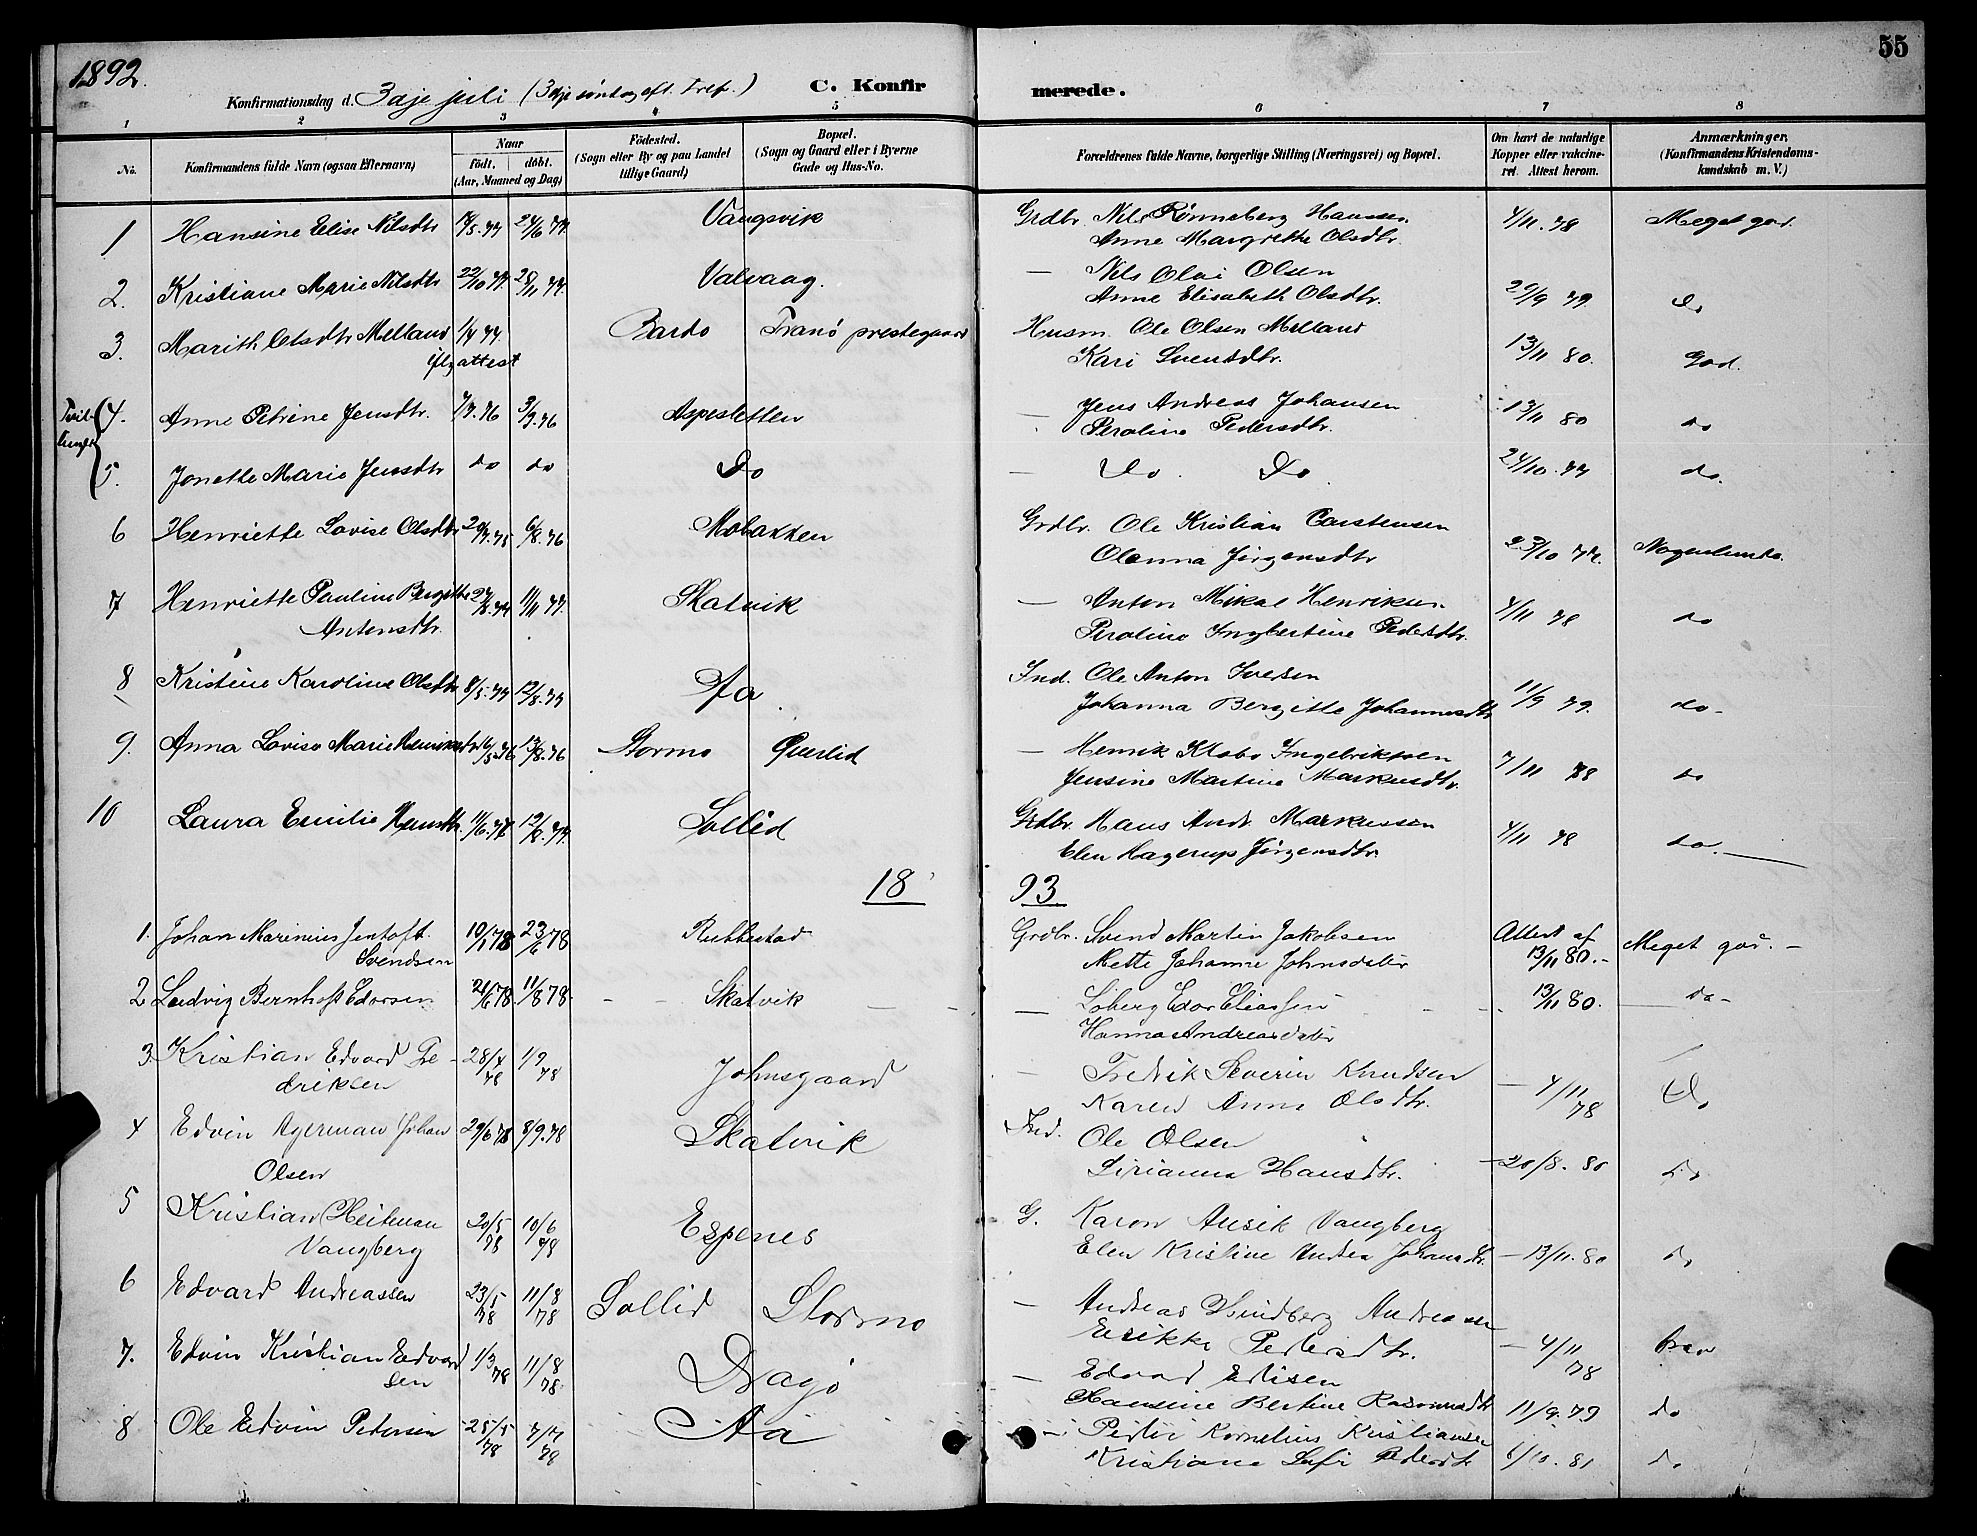 1892.
55
Konfirmationsdag d. 3dje juli (3dje søndag eft. Tref.) C. Konfirmerede.
1 2 3 4 5 6 7 8
No. Konfirmandens fulde Navn (ogsaa Efternavn) Naar födt. döbt. (Aar, Maaned og Dag) Födested. (Sogn eller By og paa Landet tillige Gaard) Bopæl. (Sogn og Gaard eller i Byerne Gade og Hus-No. Forældrenes fulde Navne, borgerlige Stilling (Næringsvei) og Bopæl. Om havt de naturlige Kopper eller vakcineret. Attest herom. Anmærkninger. (Konfirmandens Kristendomskundskab m. V.)
1 Hansine Elise Nilsdtr 17/5.77 24/6 77. Vangsvik Grdbr. Nils Rønneberg Hansen 4/11.78 Meget god.
Anne Margrethe Olsdtr.
2. Kristiane Marie Nilsdtr 22/10 77. 25/11 77. Valvaag. — Nils Olai Olsen
Anne Elisabeth Olsdtr. 29/9 79. Do
3. Marith Olsdtr Melland 1/4 77. Bardo Tranö prestegaard Husm. Ole Olsen Melland
iflg attest Kari Svensdtr. 13/11 80. God.
Tvillinger
4. Anne Petrine Jensdtr. 7/7.76 3/9.76 Aspesletten — Jens Andreas Johansen 13/11 80 do
Peroline Pedersdtr.
5. Jonette Marie Jensdtr do do Do — Do. Do 24/10.77 do.
6 Henriette Lovise Olsdtr 29/7.75 6/8.76 Mobakken Grdbr. Ole Kristian Carstensen
Olenna Jörgensdtr 23/10 77. Nogenlunde.
7 Henriette Pauline Bergitte 27/8.77 11/11 77. Skatvik — Anton Mikal Henriksen 4/11 78 do
Antonsdtr. Peroline Ingbertine Pedersdtr.
8 Kristine Karoline Olsdtr 8/5.77 12/8.77 Aa. Ind. Ole Anton Iversen
Johanna Bergitte Johannesdtr 11/9 79. do-
9. Anna Lovise Marie Henriksdtr 6/5.76 13/8.76 Stormo Qverlid — Henrik Klobo Ingebriktsen 7/11 78 do
Jensine Martine Markusdtr.
10 Laura Emilie Hansdtr. 11/6.77 12/8.77. Sollid Grdbr. Hans Andr. Markussen 4/11 78 do.
Elen Hagerup Jörgensdtr.
18 93
1. Johan Marinius Jentoft 10/1 78 23/6 78 Rubbestad Grdbr. Svend Martin Jakobsen Attest af Meget god. -
Svendsen Mette Johanne Johnsdatter 13/11 80.-
2 Ludvig Bernhoft Edorsen 21/6 78 11/8 78 Skatvik — Löberg Edor Eliassen 13/11 80. do-
Hanna Andreasdatter
3. Kristian Edvard Fre- 28/4 78 1/9 78 Johnsgaard — Fredrik Severin Knudsen — 4/11 78 Do
driksen Karen Anna Olsdtr.
4 Edvin Agerman Johan 29/6 78 8/9.78 Skatvik Ind. Ole Olsen
Olsen Sirianna Hansdtr. —20/8. 80 Do
5 Kristian Heitman 20/5 78 10/6 78 Espenes G. Karon Ansik Vangberg
Vangberg Elen Kristine Andrea Johansdtr. — 13/11.80 do
6 Edvard Andreassen 23/5 78 11/8 78 Sollid Stormo — Andreas Hindberg Andreassen
Erikke Pedersdtr. — 4/11 78 brav
7. Edvin Kristian Edvard 1/3 78 11/8 78 Dragö — Edvard Edisen
sen Hansine Bertine Rasmusdtr 11/9.79 do
8 Ole Edvin Petersen 25/5 78 7/7 78 Aa — Peder Kornelius Kristiansen
Kristiane Sofi Pedersdtr 6/10.81 do